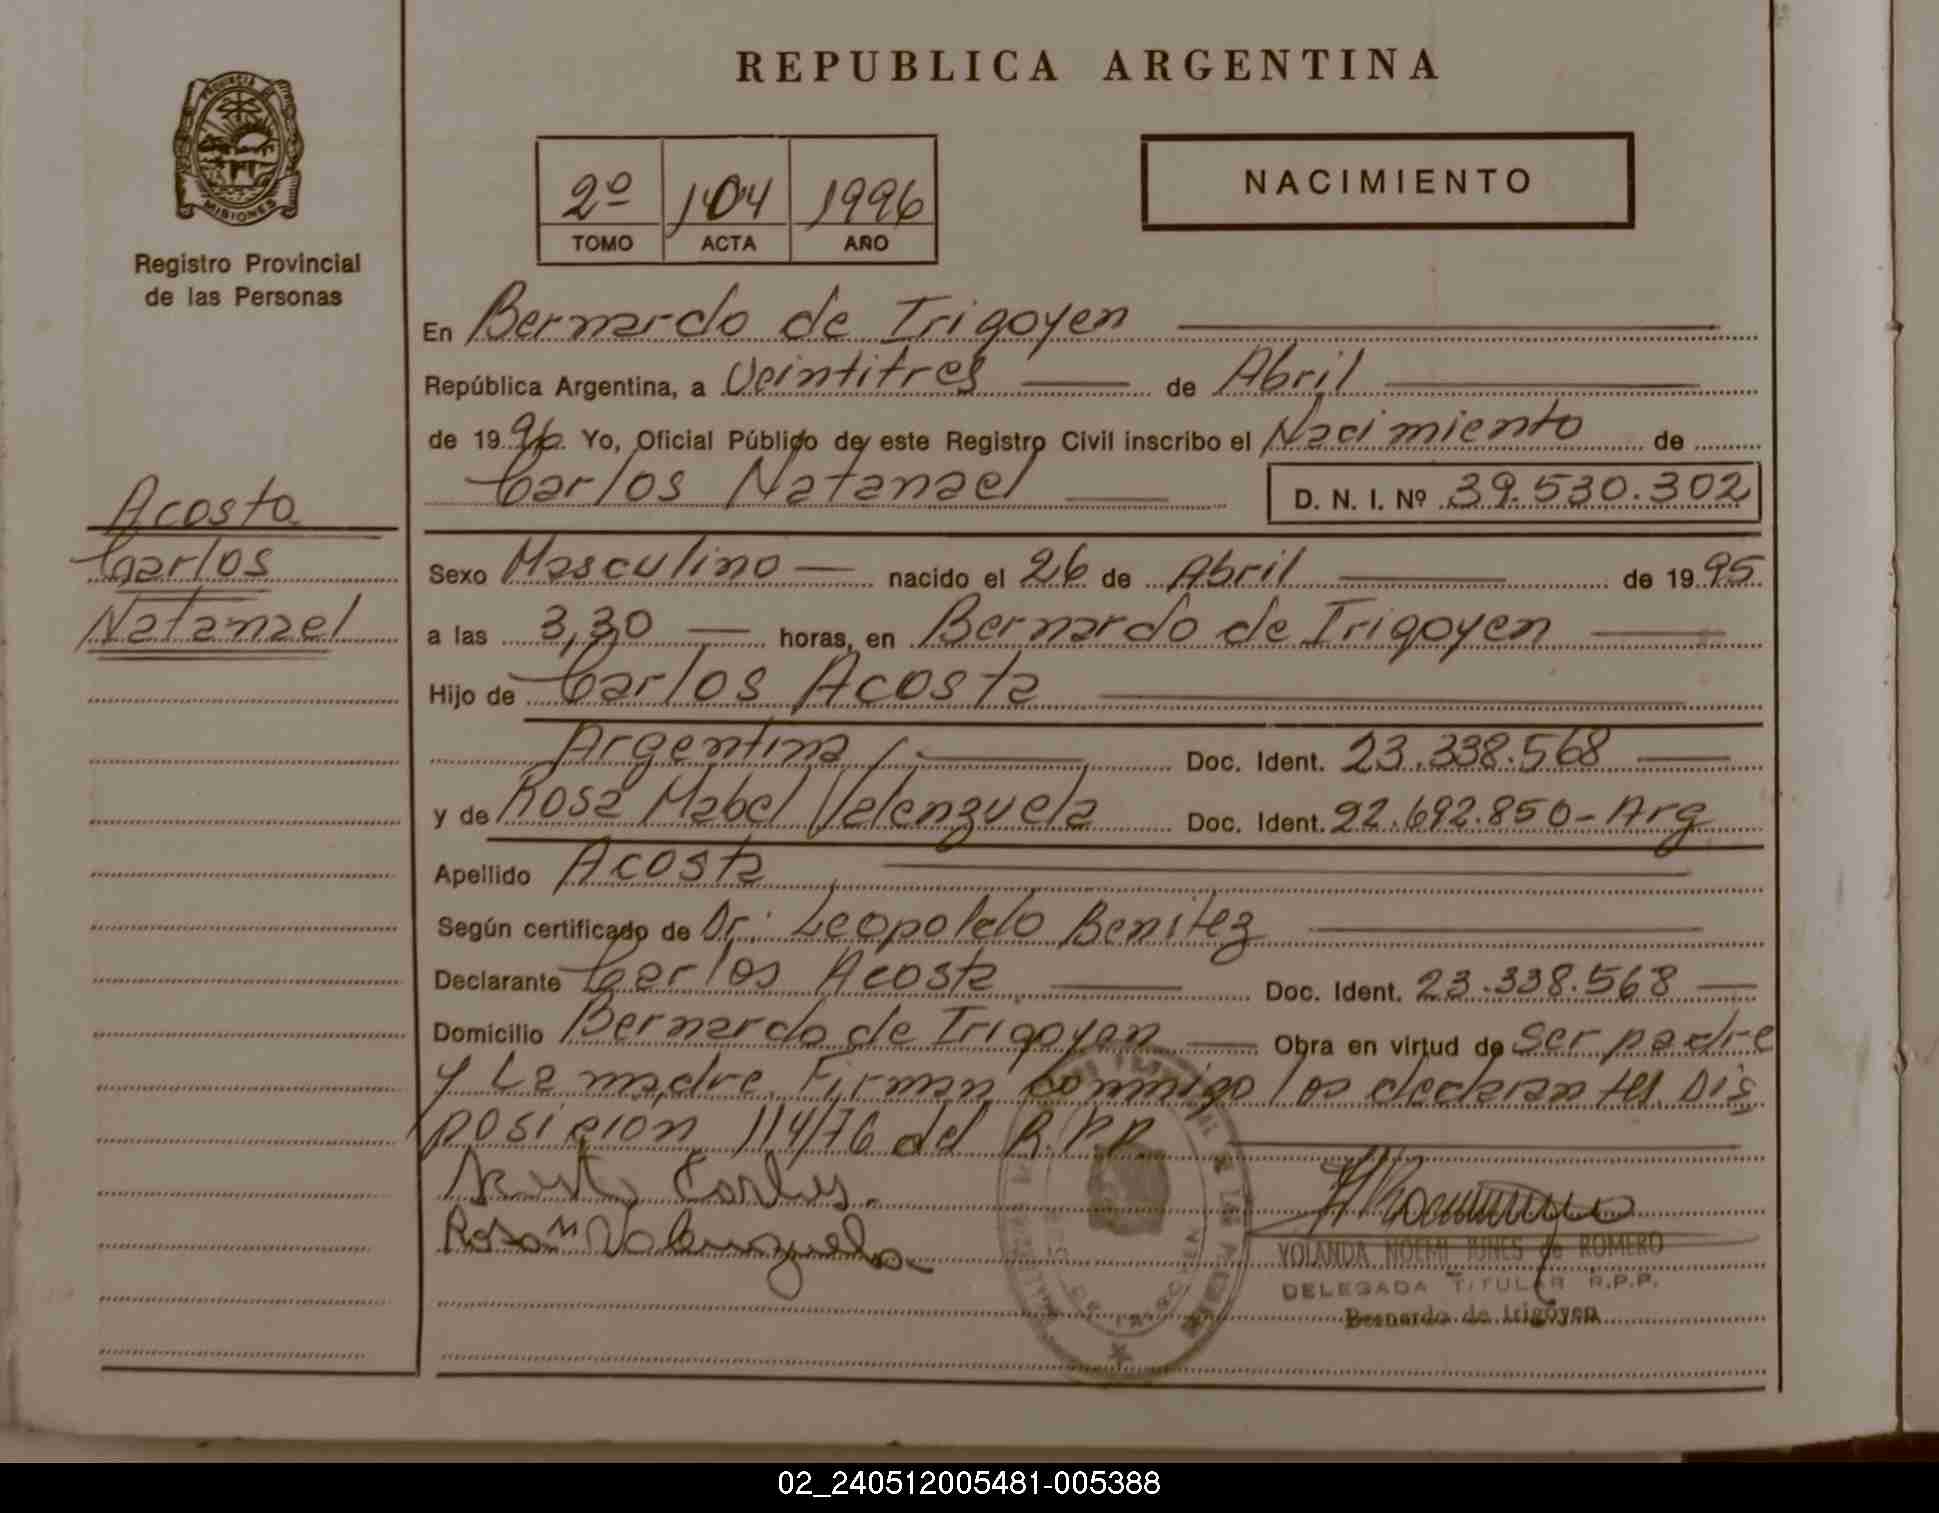 REPUBLICA ARGENTINA
PROVINCIA DE
MISIONES
Registro Provincial
de las Personas
2º 104 1996
TOMO ACTA AÑO
NACIMIENTO
En Bernardo de Irigoyen
República Argentina, a Veintitres de Abril
de 1996. Yo, Oficial Público de este Registro Civil inscribo el Nacimiento de
Carlos Natanael D. N. I. Nº 39.530.302
Acosta
Carlos
Natanael
Sexo Masculino nacido el 26 de Abril de 1995
a las 3,30 horas, en Bernardo de Irigoyen
Hijo de Carlos Acosta
Argentina Doc. Ident. 23.338.568
y de Rosa Mabel Valenzuela Doc. Ident. 22.692.850-Arg
Apellido Acosta
Según certificado de Dr. Leopoldo Benitez
Declarante Carlos Acosta Doc. Ident. 23.338.568
Domicilio Bernardo de Irigoyen Obra en virtud de ser padre
y La madre. Firman conmigo los declarantes. Dis
posicion 114/76 del R.P.P.
Acosta Carlos.
Rosa M Valenzuela
YOLANDA NOEMI JUNES de ROMERO
DELEGADA TITULAR R.P.P.
Bernardo de Irigoyen
02_240512005481-005388